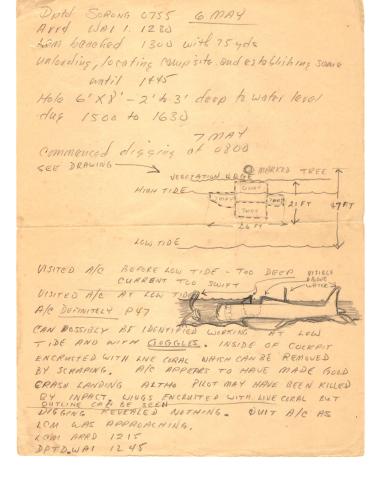 Dptd SORONG 0755 6 MAY
Arrd WAI 1. 1230
LCM beached 1300 with 75 yds
unloading, locating camp site and establishing same
until 1445
Hole 6' X 8' - 2' to 3' deep to water level
dug 1500 to 1630
7 MAY
Commenced digging at 0800
SEE DRAWING
MARKED TREE
VEGETATION EDGE
HIGH TIDE
21 FT
47 FT
26 FT
LOW TIDE
VISITED A/C BEFORE LOW TIDE - TOO DEEP
CURRENT TOO SWIFT
VISIBLE ABOVE WATER
VISITED A/C AT LOW TIDE
A/C DEFINITELY P47
CAN POSSIBLY BE IDENTIFIED WORKING AT LOW
TIDE AND WITH GOGGLES. INSIDE OF COCKPIT
ENCRUSTED WITH LIVE CORAL WHICH CAN BE REMOVED
BY SCRAPING. A/C APPEARS TO HAVE MADE GOOD
CRASH LANDING ALTHO PILOT MAY HAVE BEEN KILLED
BY INPACT. WINGS ENCRUSTED WITH LIVE CORAL BUT
OUTLINE CAN BE SEEN
DIGGING REVEALED NOTHING. QUIT A/C AS
LCM WAS APPROACHING.
LCM ARRD 1215
DPTD. WAI 1245